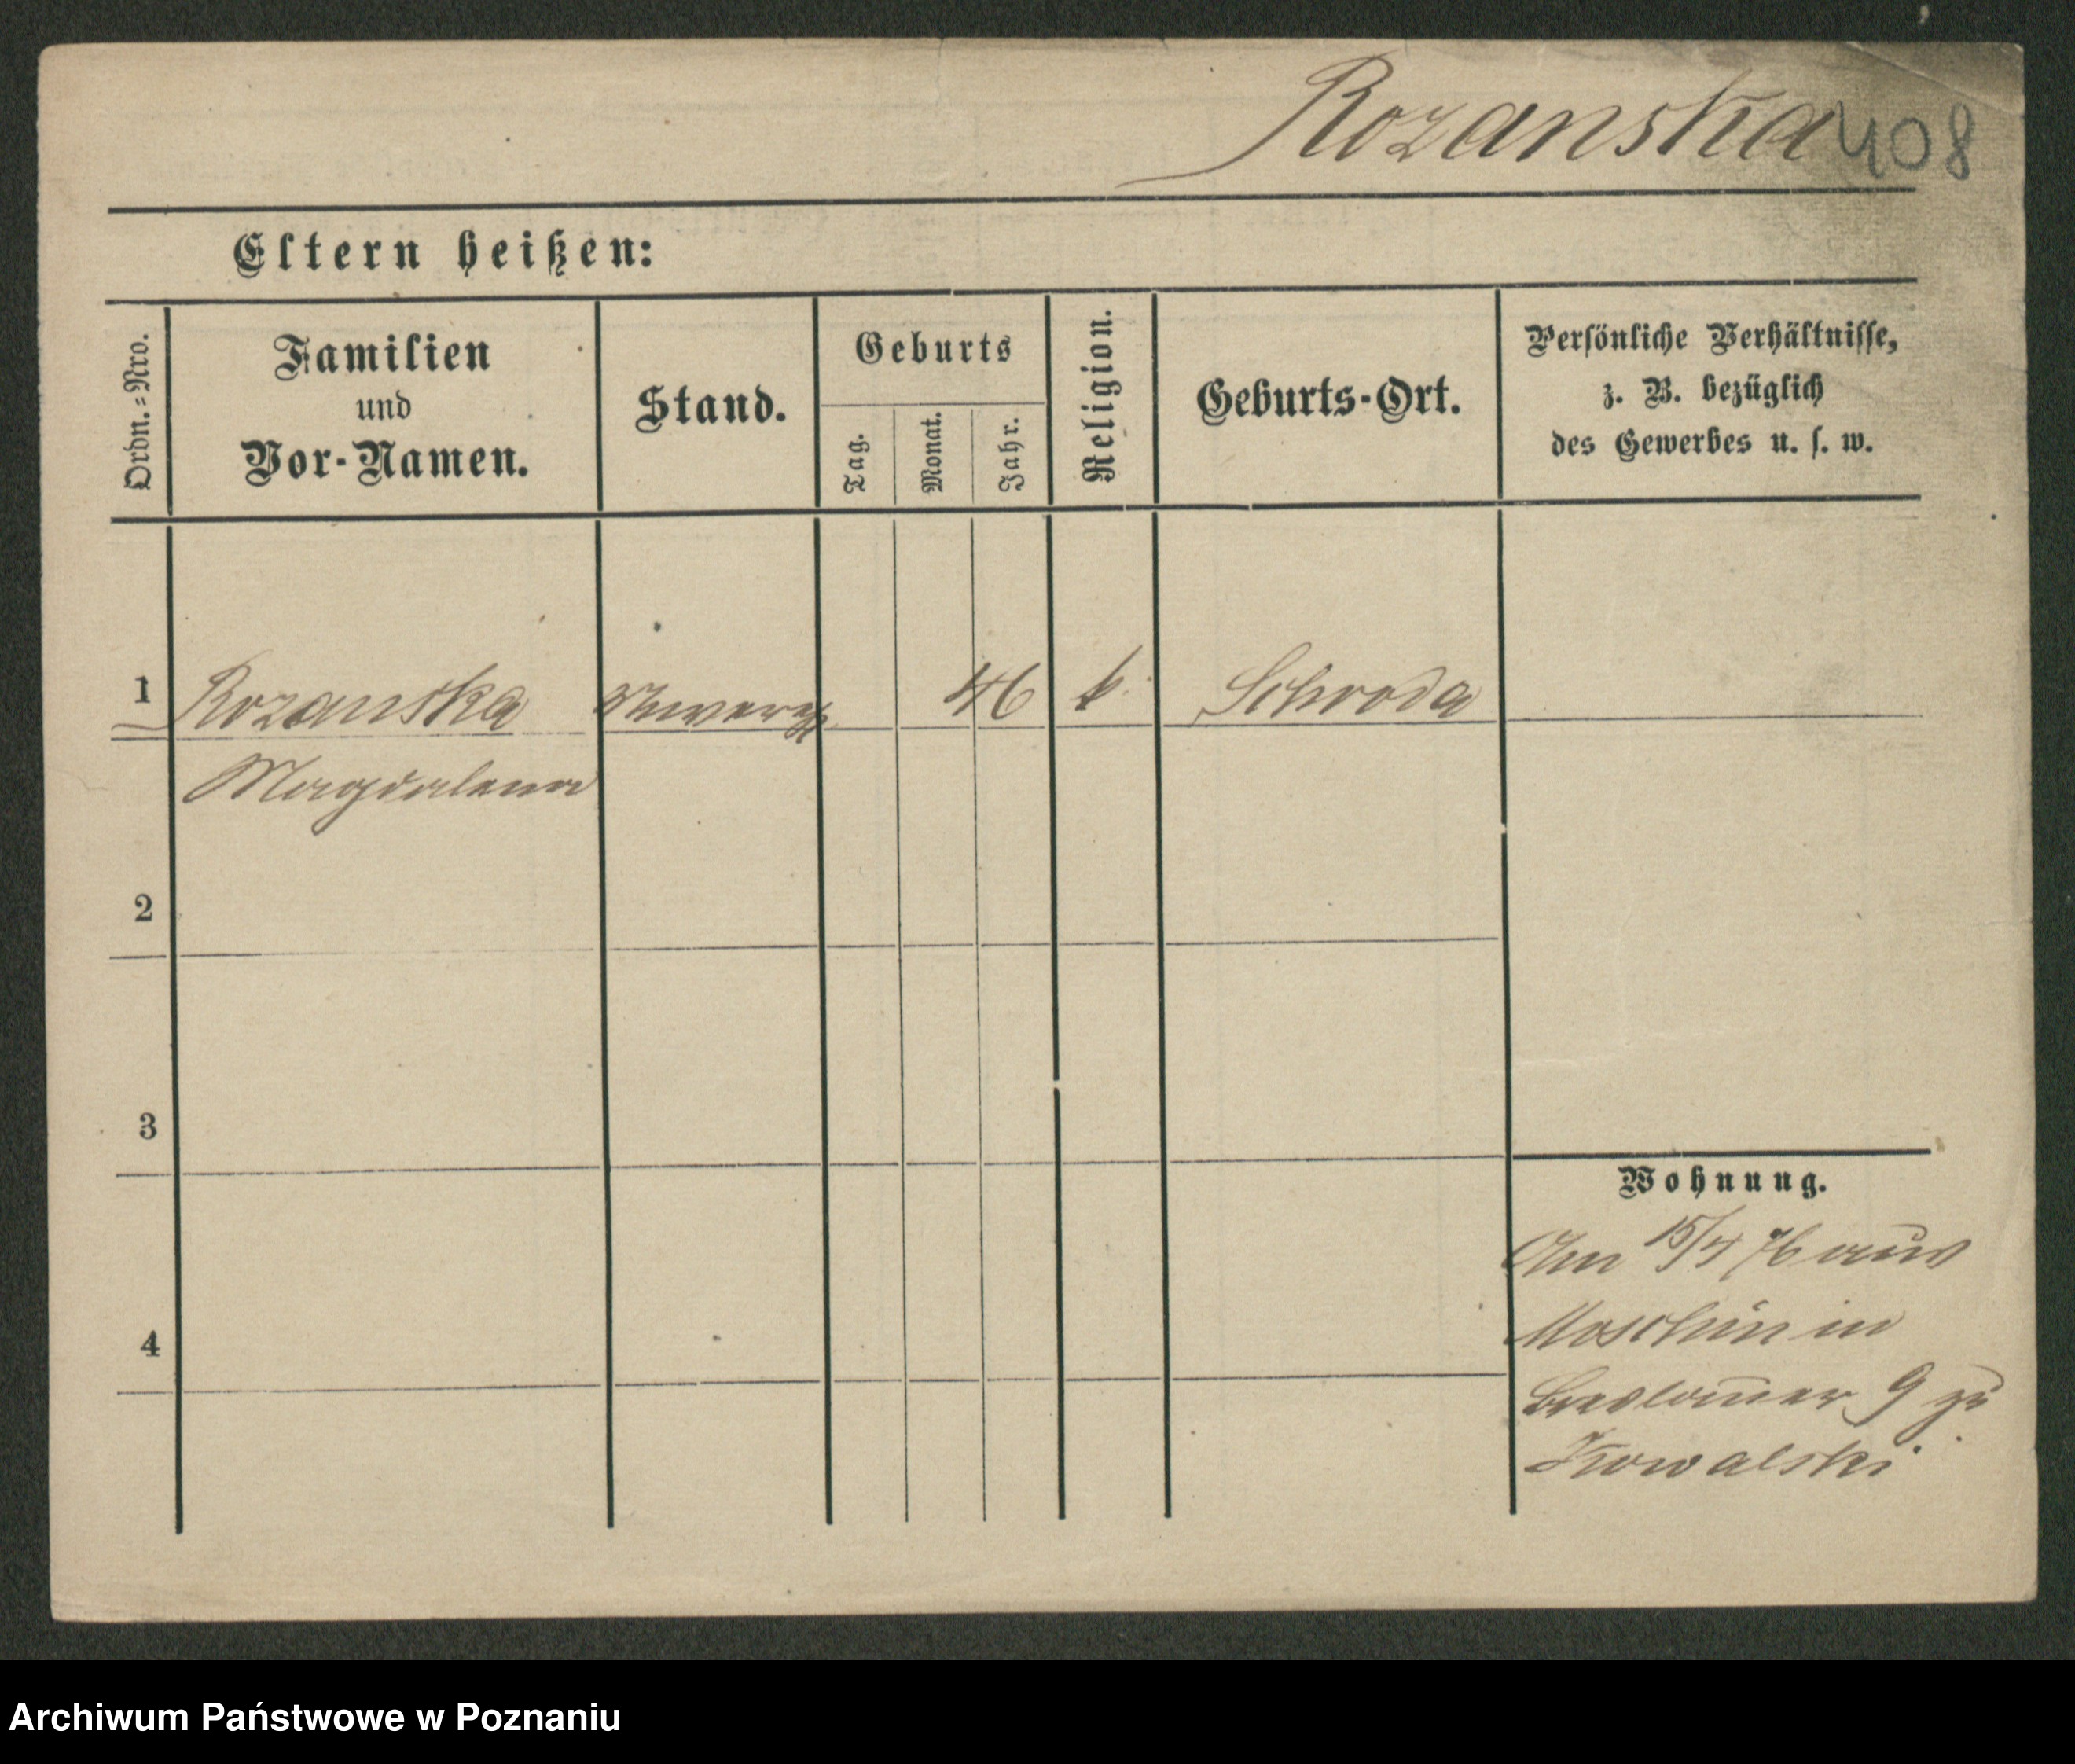 Rozanska 408
Eltern heißen:
Ordn.=Nro.
Familien
und
Vor-Namen.
Stand.
Geburts
Tag.
Monat.
Jahr.
Religion.
Geburts-Ort.
Persönliche Verhältnisse,
z. B. bezüglich
des Gewerbes u. s. w.
1 Rozanska 46 k. Schroda
Magdalena
2
3
4
Wohnung.
Am 15/4 76 aus
Moschin in
9 zu
Kowalski
Archiwum Państwowe w Poznaniu